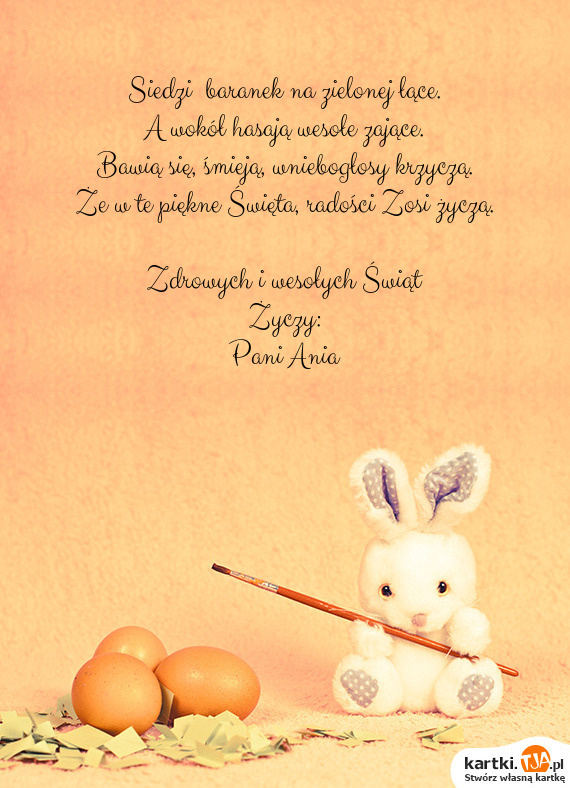 Siedzi baranek na zielonej łące.
A wokół hasają wesołe zające.
Bawią się, śmieją, wniebogłosy krzyczą.
Że w te piękne Święta, radości Zosi życzą.
Zdrowych i wesołych Świąt
Życzy:
Pani Ania
kartki.TJA.pl
Stwórz własną kartkę